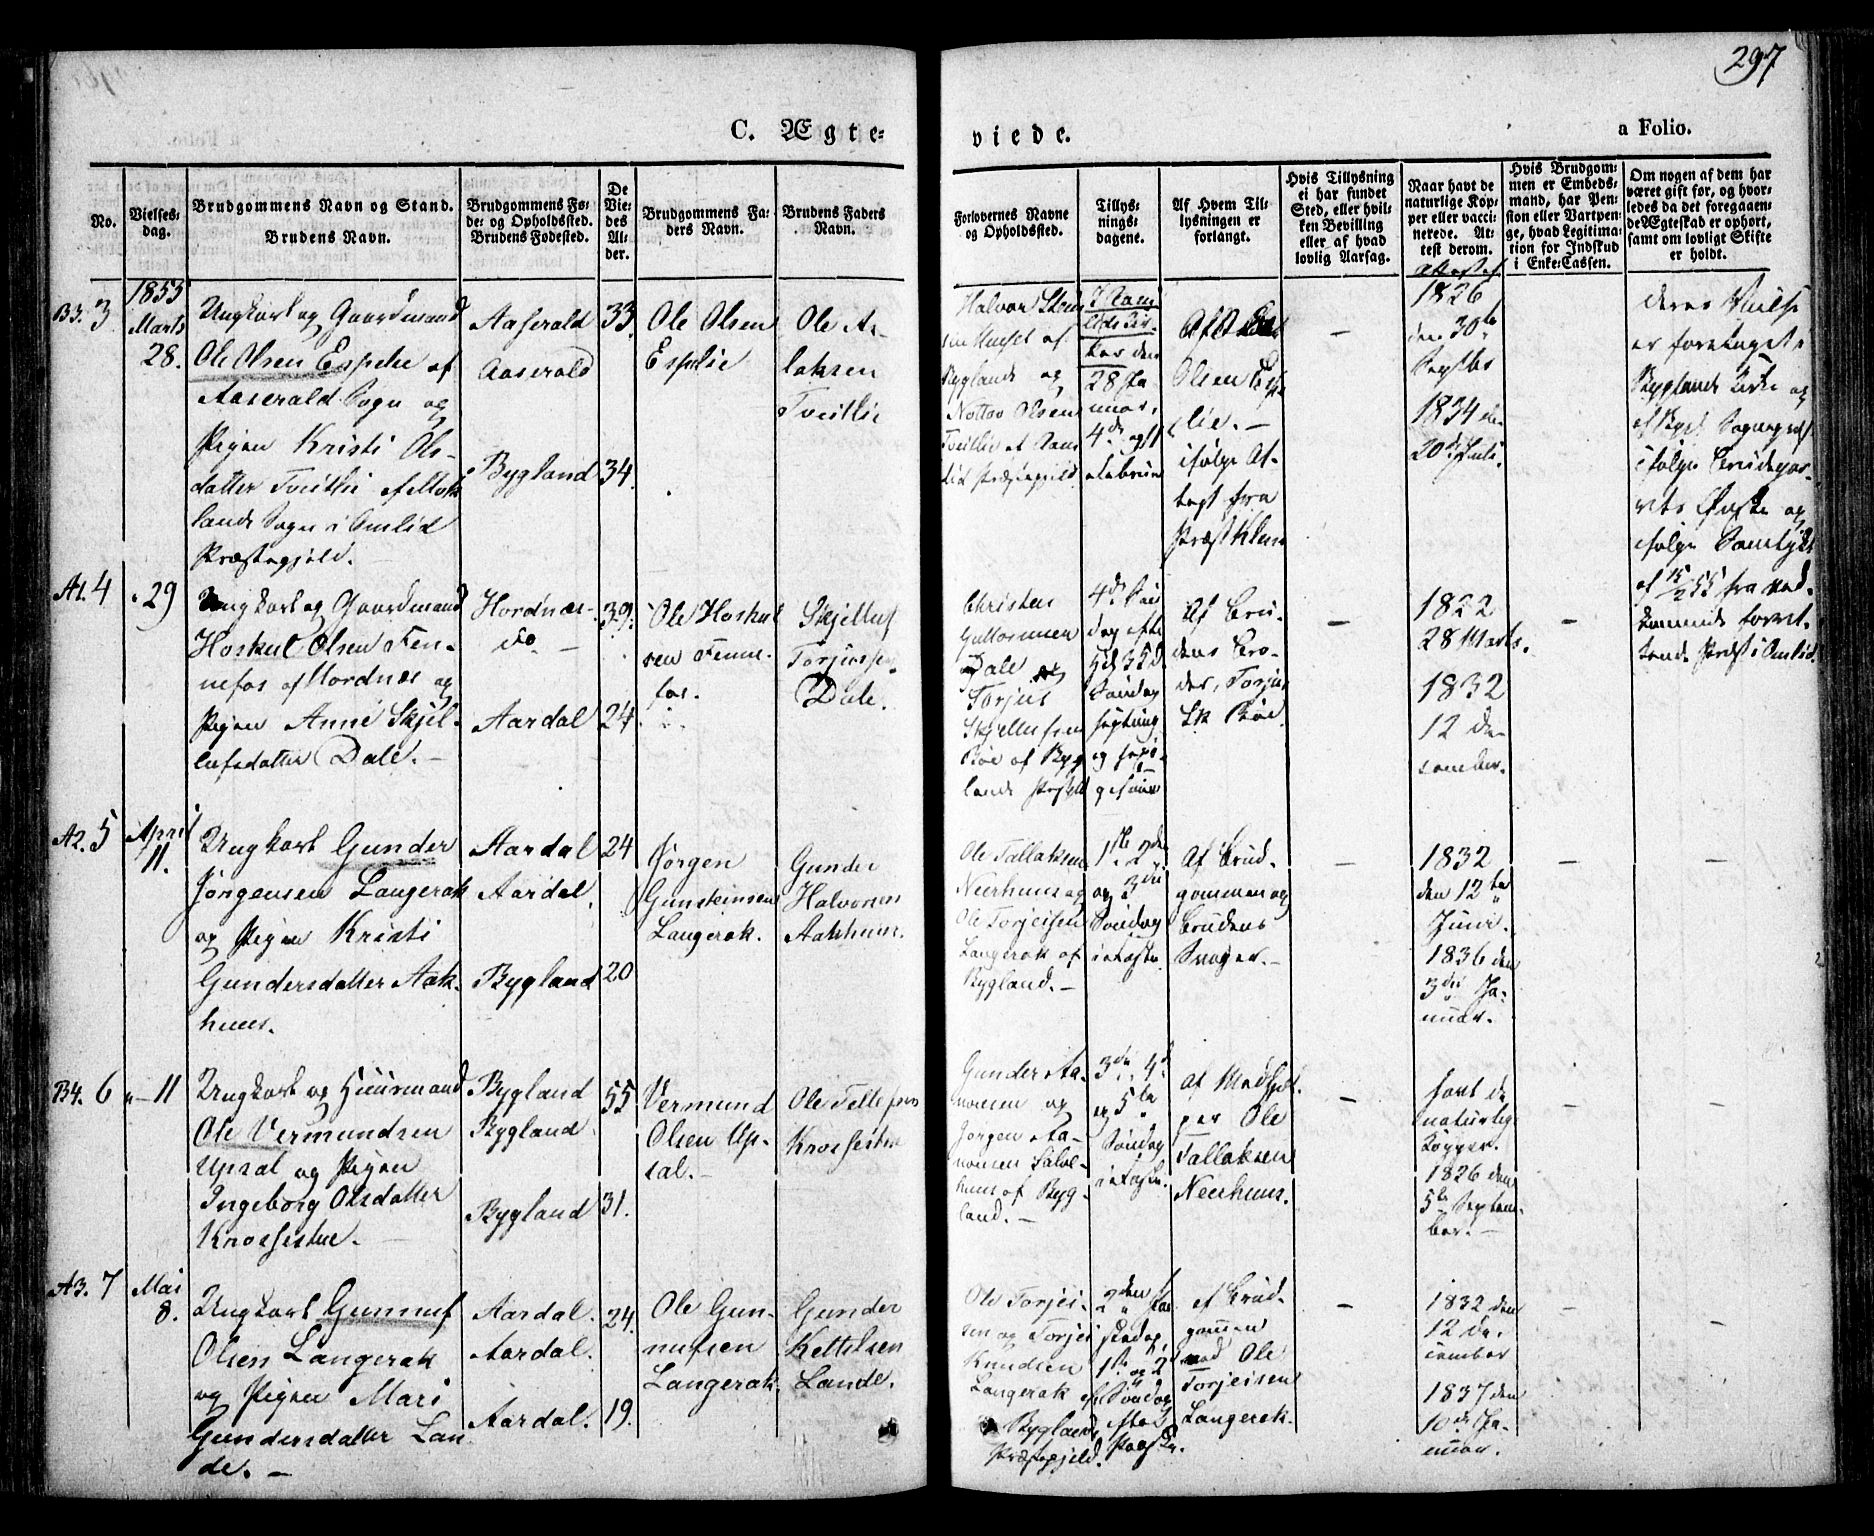 297
C. Ægte-
viede.
a Folio.
No.
Vielses-
dag.
Brudgommens Navn og Stand.
Brudens Navn.
Brudgommens Fø-
de- og Opholdssted.
Brudens Fødested.
De
Vie-
des
Al-
der.
Brudgommens Fa-
ders Navn.
Brudens Faders
Navn.
Forlovernes Navne
og Opholdssted.
Tillys-
nings-
dagene.
Af Hvem Til-
lysningen er
forlangt.
Hvis Tillysning
ei har fundet
Sted, eller hvil-
ken Bevilling
eller af hvad
lovlig Aarsag.
Naar havt de
naturlige Kop-
per eller vacci-
nerede. At-
test derom.
Hvis Brudgom-
men er Embeds-
mand, har Pen-
sion eller Vartpen-
ge, hvad Legitima-
tion for Indskud
i Enke-Cassen.
Om nogen af dem har
været gift før, og hvor-
ledes da det foregaaen-
de Ægteskab er ophørt,
samt om lovligt Skifte
er holdt.
B3. 3
1855
Marts
28.
Ungkarl og Gaardmand
Ole Olsen Espelie af
Aaserald Sogn og
Pigen Kristi Ols-
datter Tveitlie af
lands Sogn i Omlid
Præstegjeld.
Aaserald
Aaserald
Bygland
33.
34.
Ole Olsen
Espelie
Ole As-
laksen
Tveitlie
Halvor
af
Bygland og
Nottov Olsen
Tveitlie af
lid Præstegjeld
28 Ja-
nuar,
4de og 11
Februar
Af Ole
Olsen Esp-
lie. —
ifølge At-
test fra
Præst
—
Attester
1826
den 30te
Septbr
1834 den
20de Juli.
deres Vielse
er foretaget i
Byglands Kirke og
af Bygl. Sogneprest
ifølge Brudepar-
rets Ønske og
ifølge Samtykke
af 15/2 55 fra ved-
kommende forret-
tende Præst i Omlid.
A1. 4
" 29
Ungkarl og Gaardmand
Hoskul Olsen Fen-
nefos af Hordnæs og
Pigen Anne Skjel-
lufsdatter Dale. —
Hordnæs.
do —
Aardal
39.
24.
Ole Hoskul
sen Fenne-
fos.
Skjelluf
Torjussen
Dale.
Christen
Guttormsen
Dale og
Torjus
Skjellufsen
Bøe af Byg
lands Præstgjld
4de Søn
dag efter
Søndag
Af Bru-
dens Bro-
der, Torjus
Sk Bøe.
—
1822
28 Marts.
1832
12 De-
cember.
—
A2. 5
April
11.
Ungkarl Gunder
Jørgensen Langerak
og Pigen Kristi
Gundersdatter Aak-
huus.
Aardal
Aardal.
Bygland
24
20
Jørgen
Gunsteinsen
Langerak.
Gunder
Halvorsen
Aakhuus.
Ole Tallaksen
Neerhuus og
Ole Torjeisen
Langerak af
Bygland. —
1ste 2den
og 3die
Søndag
i Faste.
Af Brud-
gommen og
Brudens
Svoger. —
—
1832
den 12te
Juni.
1836 den
3die Ja-
nuar.
—
—
B4. 6
" — 11
Ungkarl og Huusmand
Ole Vermundsen
Upsal og Pigen
Ingeborg Olsdatter
Knossestue. —
Bygland
Bygland.
Bygland
55
31.
Vermund
Olsen Up-
sal. —
Ole Tellefsen
Knossestue
Gunder Aa-
nonsen og
Jørgen Aa-
nonsen
huus af Byg-
land. —
3die, 4de
og 5te
Søndag
i Faste.
af Medhjel-
per Ole
Tallaksen
Neerhuus.
—
havt de
naturlige
Kopper.
1826 den
5te Septem-
ber. —
—
—
A3. 7
Mai
8.
Ungkarl Gunnuf
Olsen Langerak
og Pigen Mari
Gundersdatter Lan
de. —
Aardal.
Aardal.
Aardal.
24.
19.
Ole Gun-
nufsen
Langerak.
Gunder
Kettelsen
Lande.
Ole Torjei-
sen og Torjei
Knudsen
Langerak af
Byglands
Præstegjeld.
2den Paa
skedag,
1ste og 2
Søndag
efter
Paaske.
af Brud-
gommen
ved Ole
Torjeisen
Langerak.
—
1832 den
12 De-
cember
1837 den
10de Ja-
nuar.
—
—